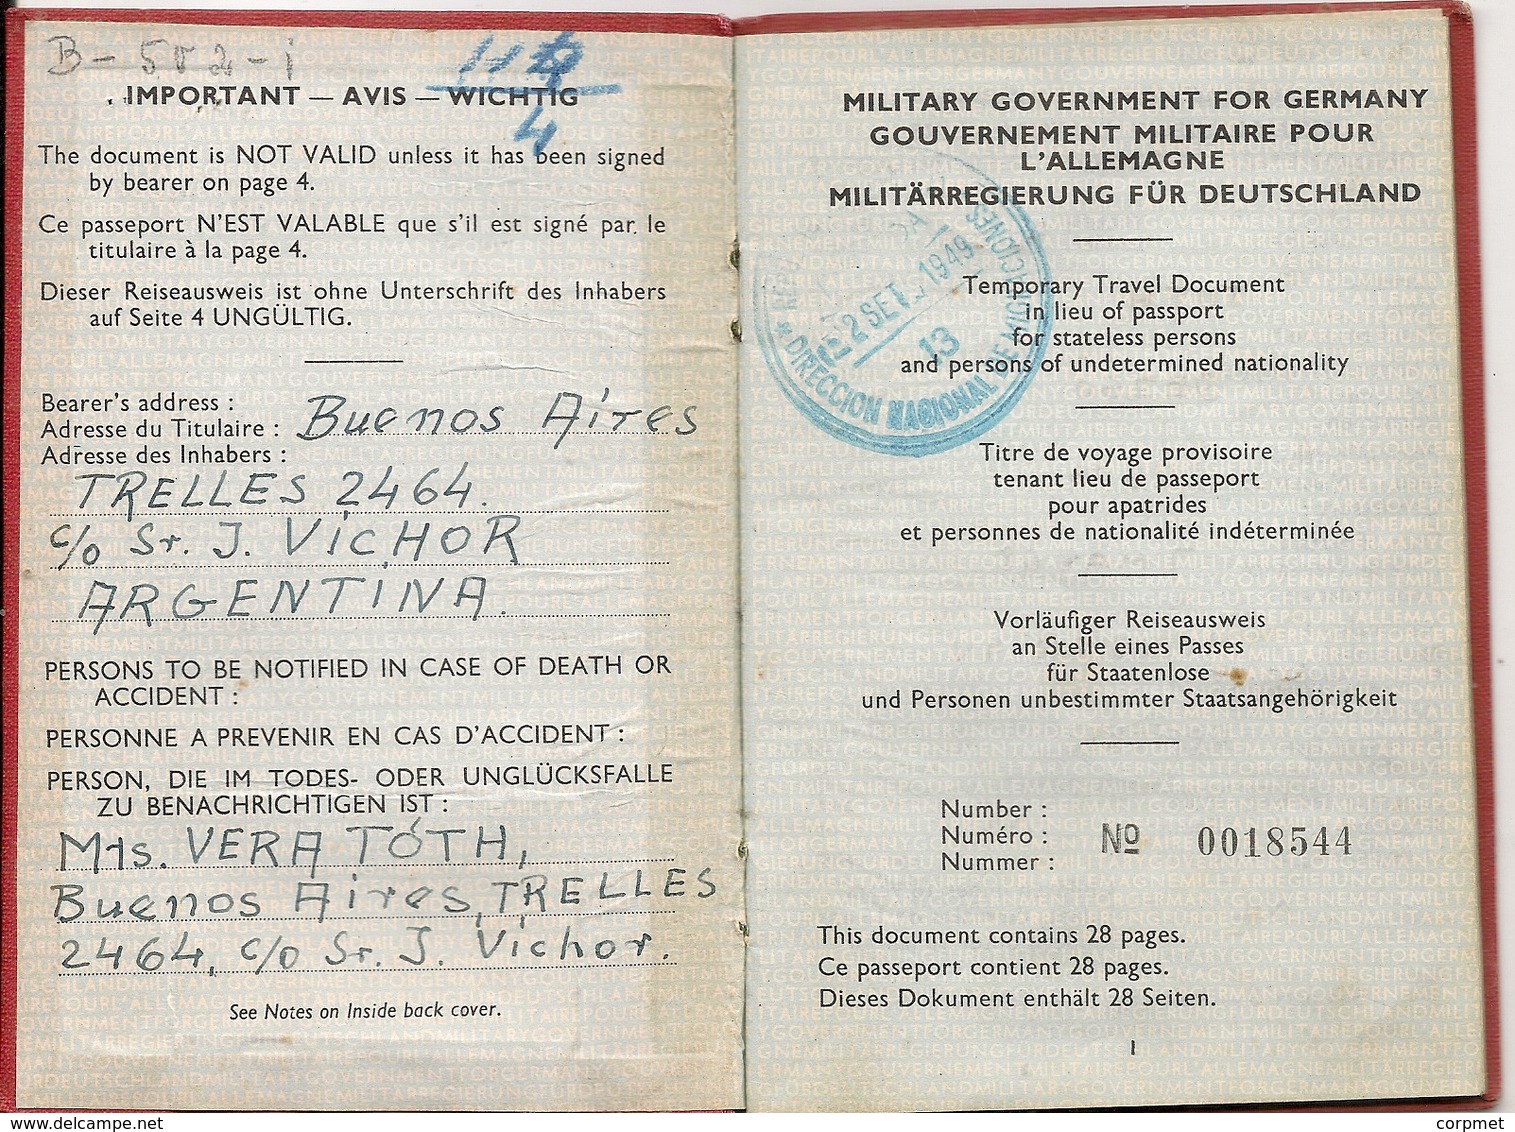 B - 502 - i
IMPORTANT — AVIS — WICHTIG
4
The document is NOT VALID unless it has been signed
by bearer on page 4.
Ce passeport N'EST VALABLE que s'il est signé par le
titulaire à la page 4.
Dieser Reiseausweis ist ohne Unterschrift des Inhabers
auf Seite 4 UNGÜLTIG.
Bearer's address :
Adresse du Titulaire : Buenos Aires
Adresse des Inhabers :
TRELLES 2464.
c/o Sr. J. VICHOR
ARGENTINA.
PERSONS TO BE NOTIFIED IN CASE OF DEATH OR
ACCIDENT :
PERSONNE A PREVENIR EN CAS D'ACCIDENT :
PERSON, DIE IM TODES- ODER UNGLÜCKSFALLE
ZU BENACHRICHTIGEN IST :
Mrs. VERA TÓTH,
Buenos Aires, TRELLES
2464, c/o Sr. J. Vichor.
See Notes on Inside back cover.
MILITARY GOVERNMENT FOR GERMANY
GOUVERNEMENT MILITAIRE POUR
L'ALLEMAGNE
MILITÄRREGIERUNG FÜR DEUTSCHLAND
2 SET. 1949
13
DIRECCION NACIONAL DE
Temporary Travel Document
in lieu of passport
for stateless persons
and persons of undetermined nationality
Titre de voyage provisoire
tenant lieu de passeport
pour apatrides
et personnes de nationalité indéterminée
Vorläufiger Reiseausweis
an Stelle eines Passes
für Staatenlose
und Personen unbestimmter Staatsangehörigkeit
Number :
Numéro : No 0018544
Nummer :
This document contains 28 pages.
Ce passeport contient 28 pages.
Dieses Dokument enthält 28 Seiten.
1
www.delcampe.net
corpmet